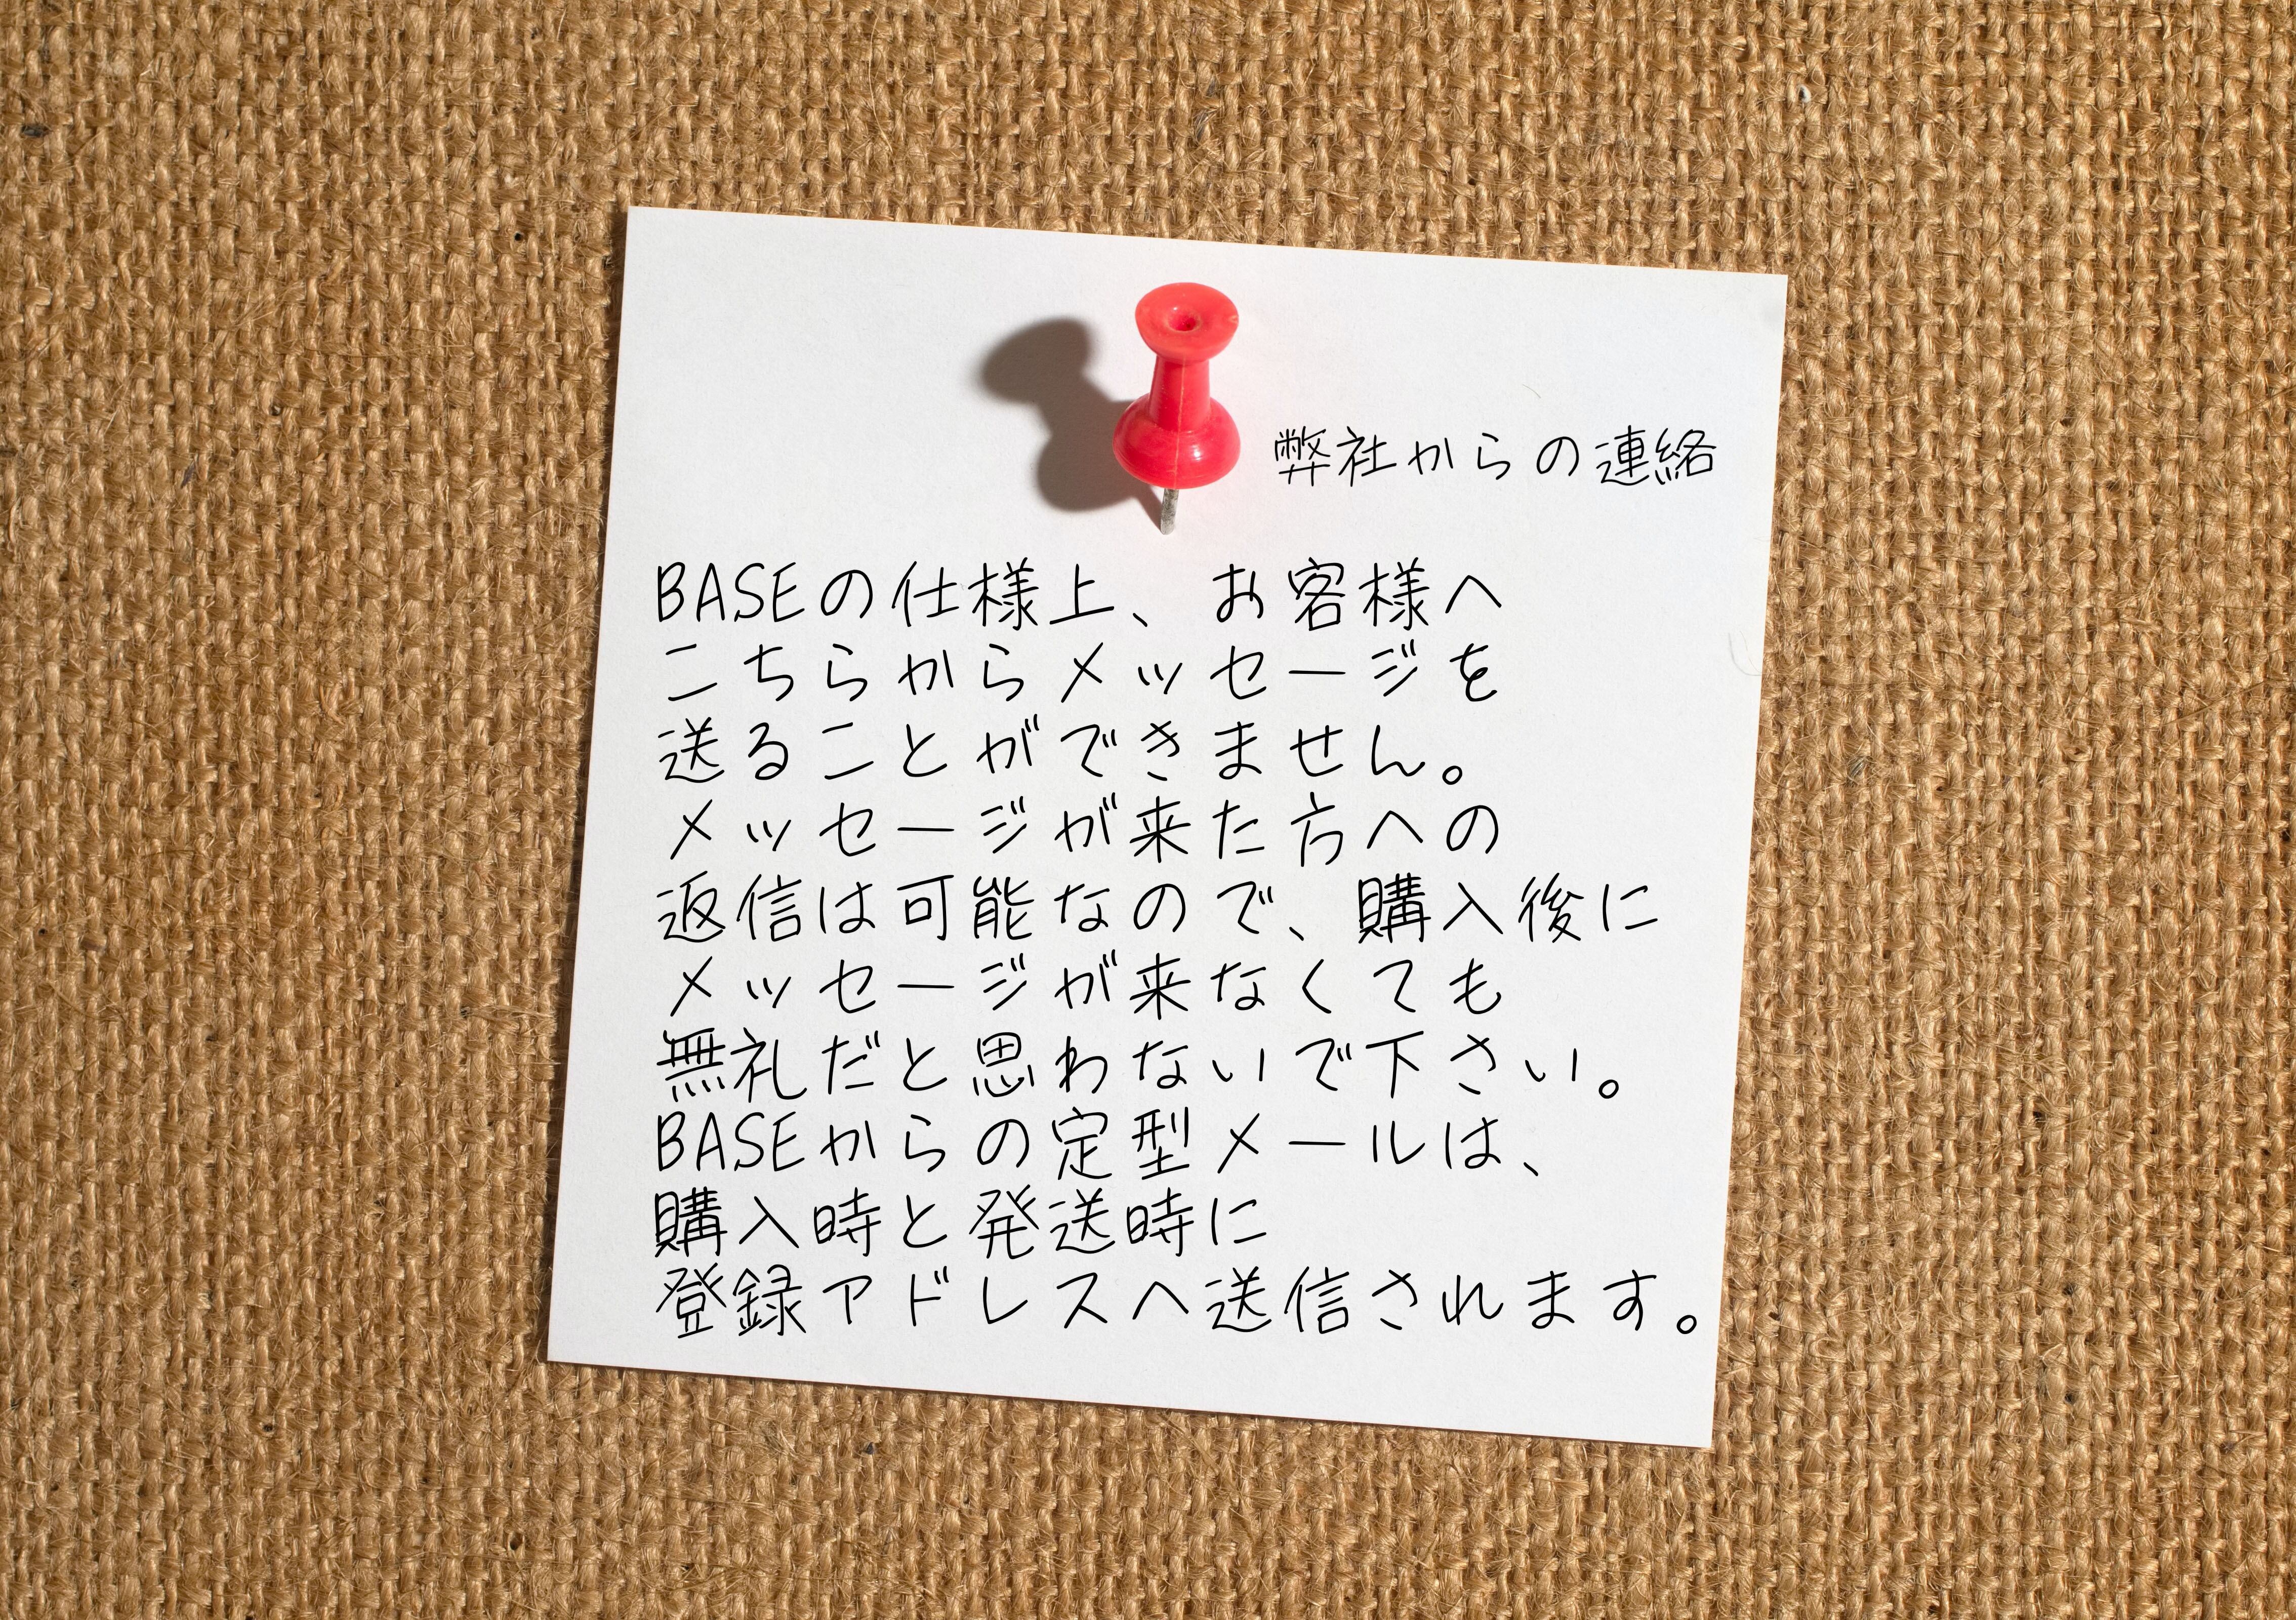 弊社からの連絡
BASEの仕様上、お客様へ
こちらからメッセージを
送ることができません。
メッセージが来た方への
返信は可能なので、購入後に
メッセージが来なくても
無礼だと思わないで下さい。
BASEからの定型メールは、
購入時と発送時に
登録アドレスへ送信されます。